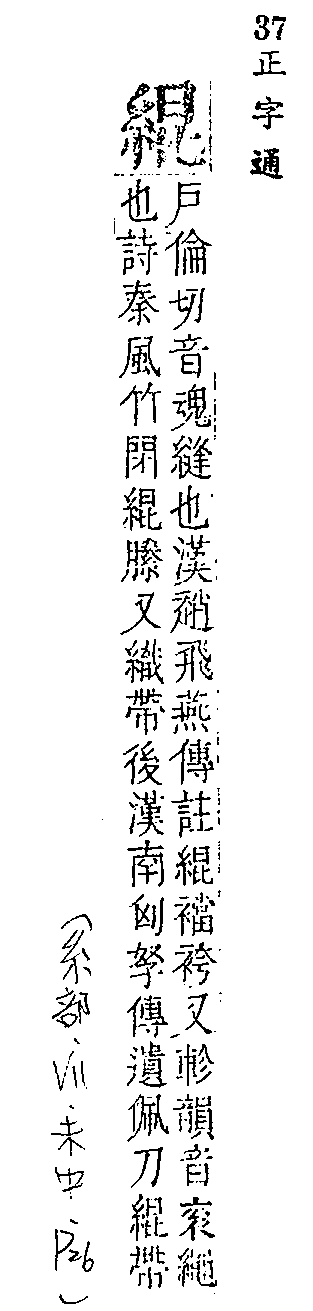 37正字通
緄
戶倫切音魂縫也漢趙飛燕傳註緄襠袴又軫韻音袞繩
也詩秦風竹閉緄縢又織帶後漢南匈奴傳遺佩刀緄帶
(糸部·VII·未中·P26)